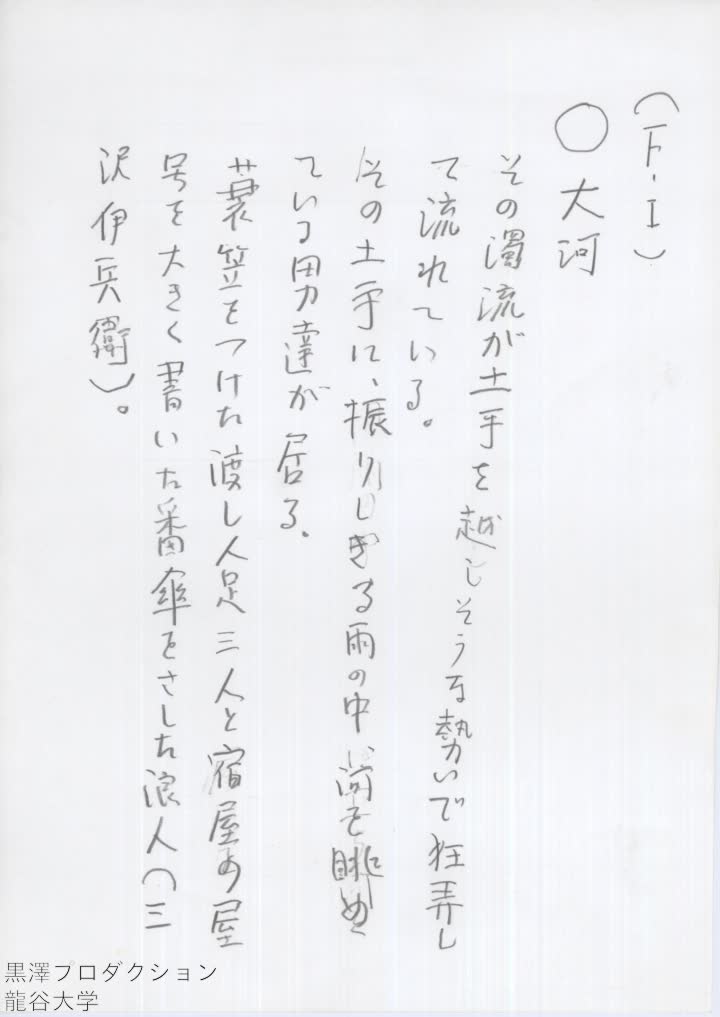 (F・I)
○大河
その濁流が土手を越しそうな勢いで狂弄し
て流れている。
その土手に、振りしきる雨の中、河を眺め
ている男達が居る。
蓑笠をつけた渡し人足三人と宿屋の屋
号を大きく書いた番傘をさした浪人(三
沢伊兵衛)。
黒澤プロダクション
龍谷大学